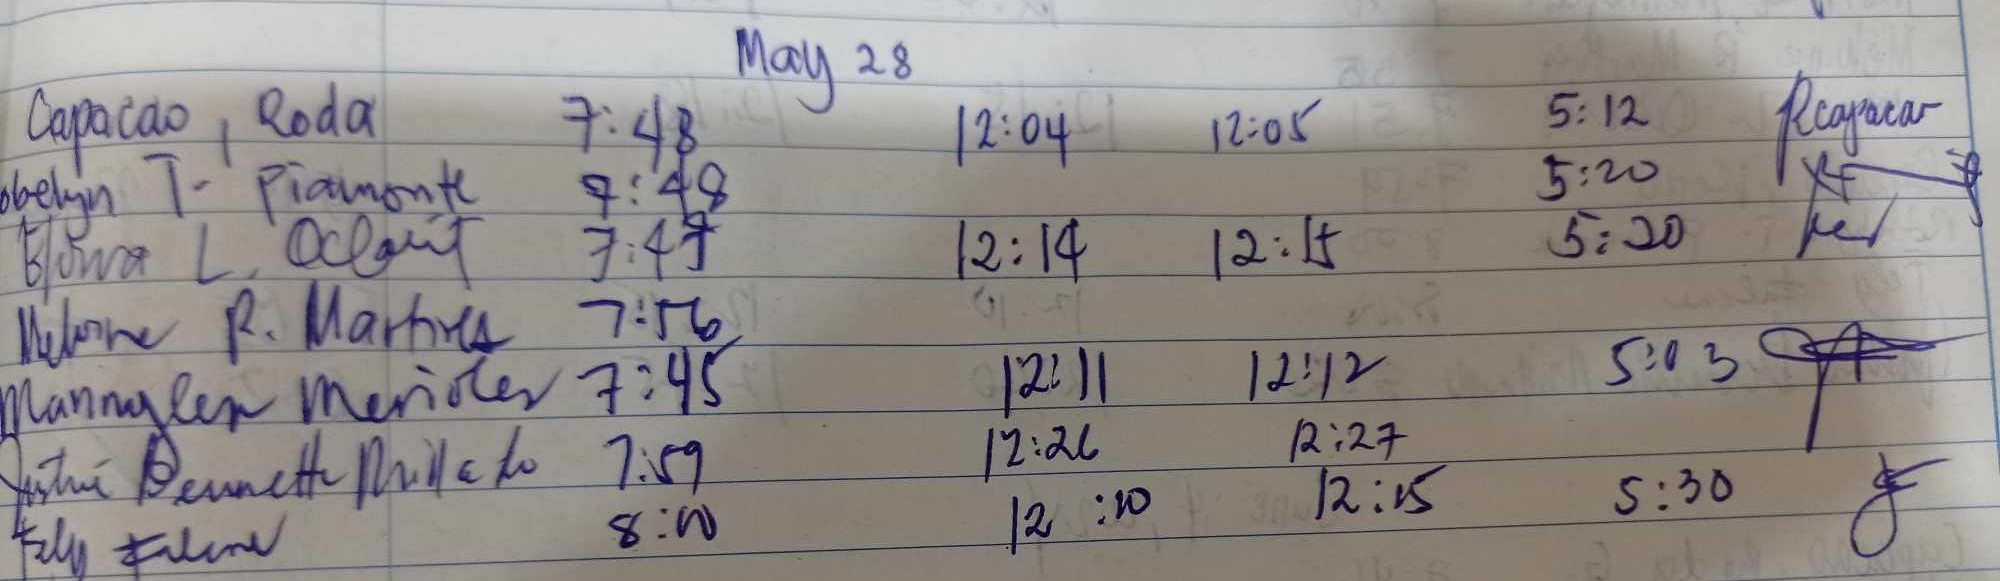 May 28
Capacao, Roda 7:48 12:04 12:05 5:12 Rcapacao
T. Piamonte 7:48 5:20
L. 7:47 12:14 12:15 5:20
R. Martires 7:56
Mannylen Merioles 7:45 12:11 12:12 5:03
Bennette 7:59 12:26 12:27
8:00 12:10 12:15 5:30